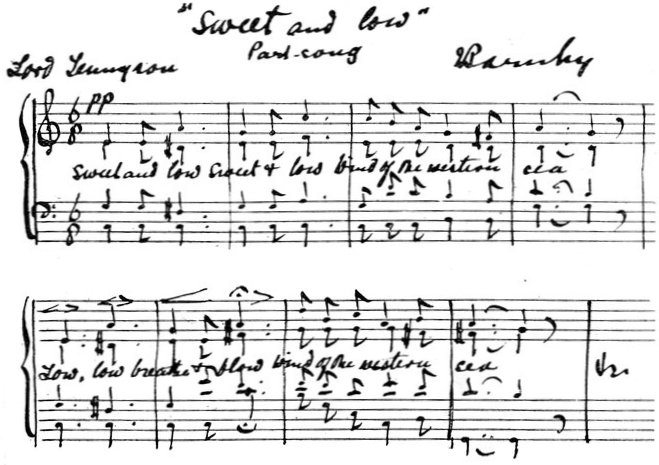 "Sweet and low"
Part-song
Lord Tennyson JBarnby
pp
Sweet and low Sweet & low Wind of the western sea
Low, low breathe & blow Wind of the western sea